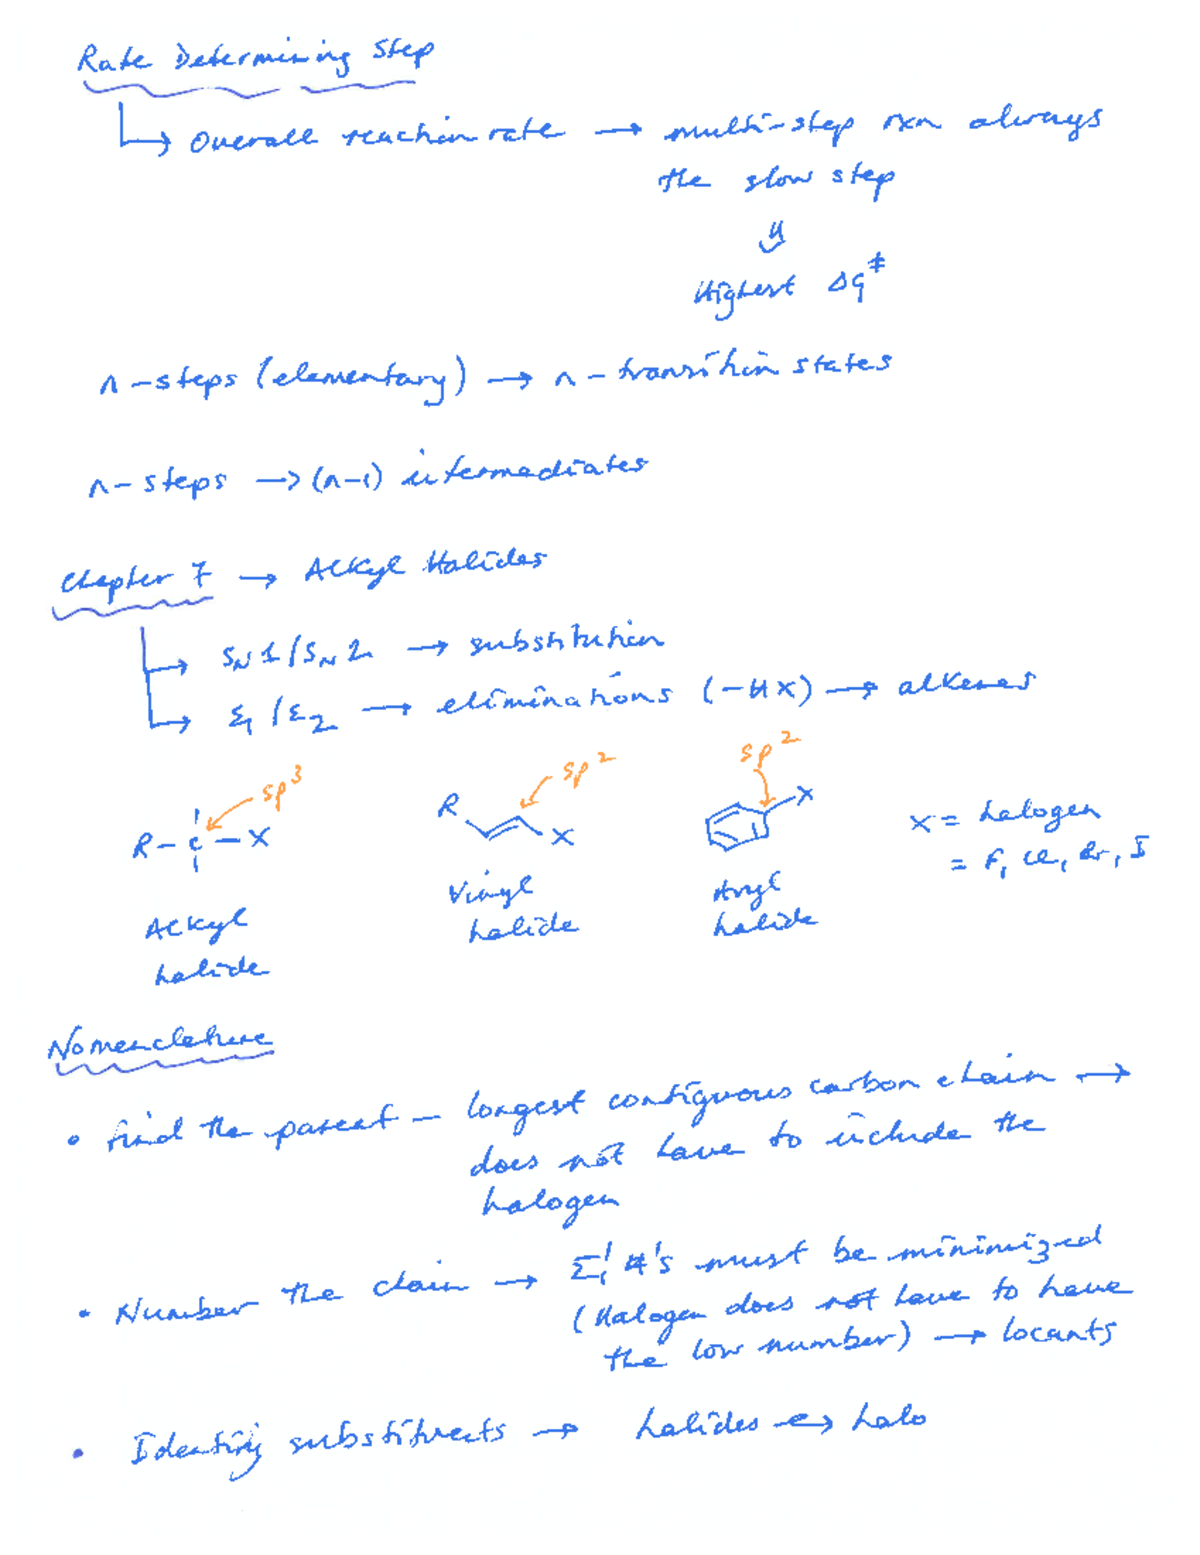 Rate Determining Step
↳ Overall reaction rate → multi-step rxn always
the slow step
Highest ΔG‡
n-steps (elementary) → n-transition states
n-steps → (n-1) intermediates
Chapter 7 → Alkyl Halides
→ SN1/SN2 → substitution
→ E1/E2 → eliminations (-HX) → alkenes
sp³ sp² sp²
R-C-X R X X X = halogen
= F, Cl, Br, I
Alkyl halide
Vinyl halide
Aryl halide
Nomenclature
• Find the parent - longest contiguous carbon chain →
does not have to include the
halogen
• Number the chain → Σ #'s must be minimized
(Halogen does not have to have
the low number) → locants
• Identify substituents → halides ↔ halo